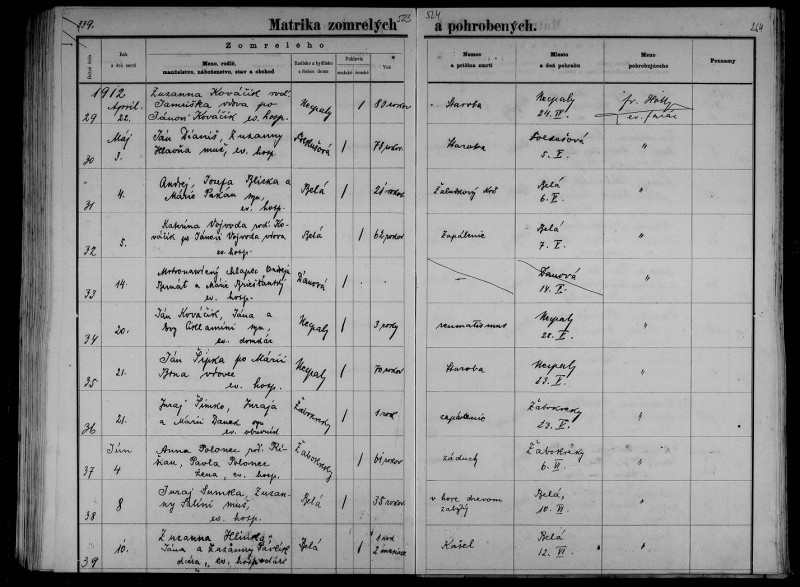 339.
Matrika zomrelých
523
524
a pohrobených.
264
Zomrelého
Bežné číslo
Rok
a deň smrti
Meno, rodič,
manželstvo, náboženstvo, stav a obchod
Rodisko a bydlisko
a číslo domu
Pohlavie
mužské ženské
Vek
Nemoc
a príčina smrti
Miesto
a deň pohrabu
Meno
pohrobujúceho
Poznamy
1912
29
April
22.
Zuzanna Kováčik rod.
vdova po
Jánovi Kováčik ev. hosp.
Necpaly
1
80 rokov
Staroba
Necpaly
24. IV.
fr. Hodž
ev. farár
30
Máj
3.
Ján Dianiš, Zuzanny
Hlavňa muž, ev. hosp.
Folkušová
1
78 rokov
Staroba
Folkušová
5. V.
"
31
4.
Andrej, Jozefa Bliska a
Márie syn,
ev. hosp.
Belá
1
21 rokov
Belá
6. V.
"
32
5.
Katarína Vojvoda rod. Ko-
váčik po Jánovi Vojvoda vdova
ev. hosp.
Belá
1
62 rokov
Zapálenie
Belá
7. V.
"
33
14.
Mrtvonarodený chlapec Ondreja
a Márie
ev. hosp.
Ďanová
1
Ďanová
14. V.
"
34
20.
Ján Kováčik, Jána a
syn,
ev. domkár
Necpaly
1
3 roky
reumatismus
Necpaly
22. V.
"
35
21.
Ján Šipka po Márii
Brna vdovec
ev. hosp.
Necpaly
1
70 rokov
Staroba
Necpaly
23. V.
"
36
21.
Juraj Šimko, Juraja
a Márii Daned syn
ev. obuvník
Žabokreky
1
1 rok
zapálenie
Žabokreky
23. V.
"
37
Jún
4
Anna Polonec rod.
Pavla Polonec
žena, ev. hosp.
Žabokreky
1
61 rokov
záduch
Žabokreky
6. VI.
"
38
8
Juraj Sumka, Zuzan-
ny Salíni muž,
ev. hosp.
Belá
1
35 rokov
v hore drevom
zabitý
Belá,
10. VI.
"
39
10.
Zuzanna Hlinská,
Jána a Zuzanny Pavlík
dcéra, ev. hospodári
Belá
1
1 rok
2 mesiace
Kašel
Belá
12. VI
"